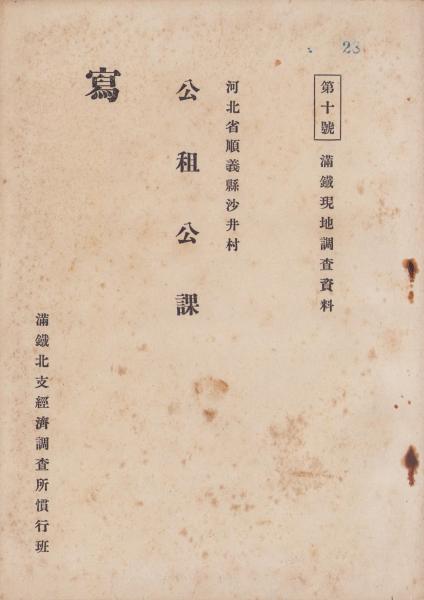 23
第十號 滿鐵現地調査資料
河北省順義縣沙井村
公租公課
寫
滿鐵北支經濟調査所慣行班